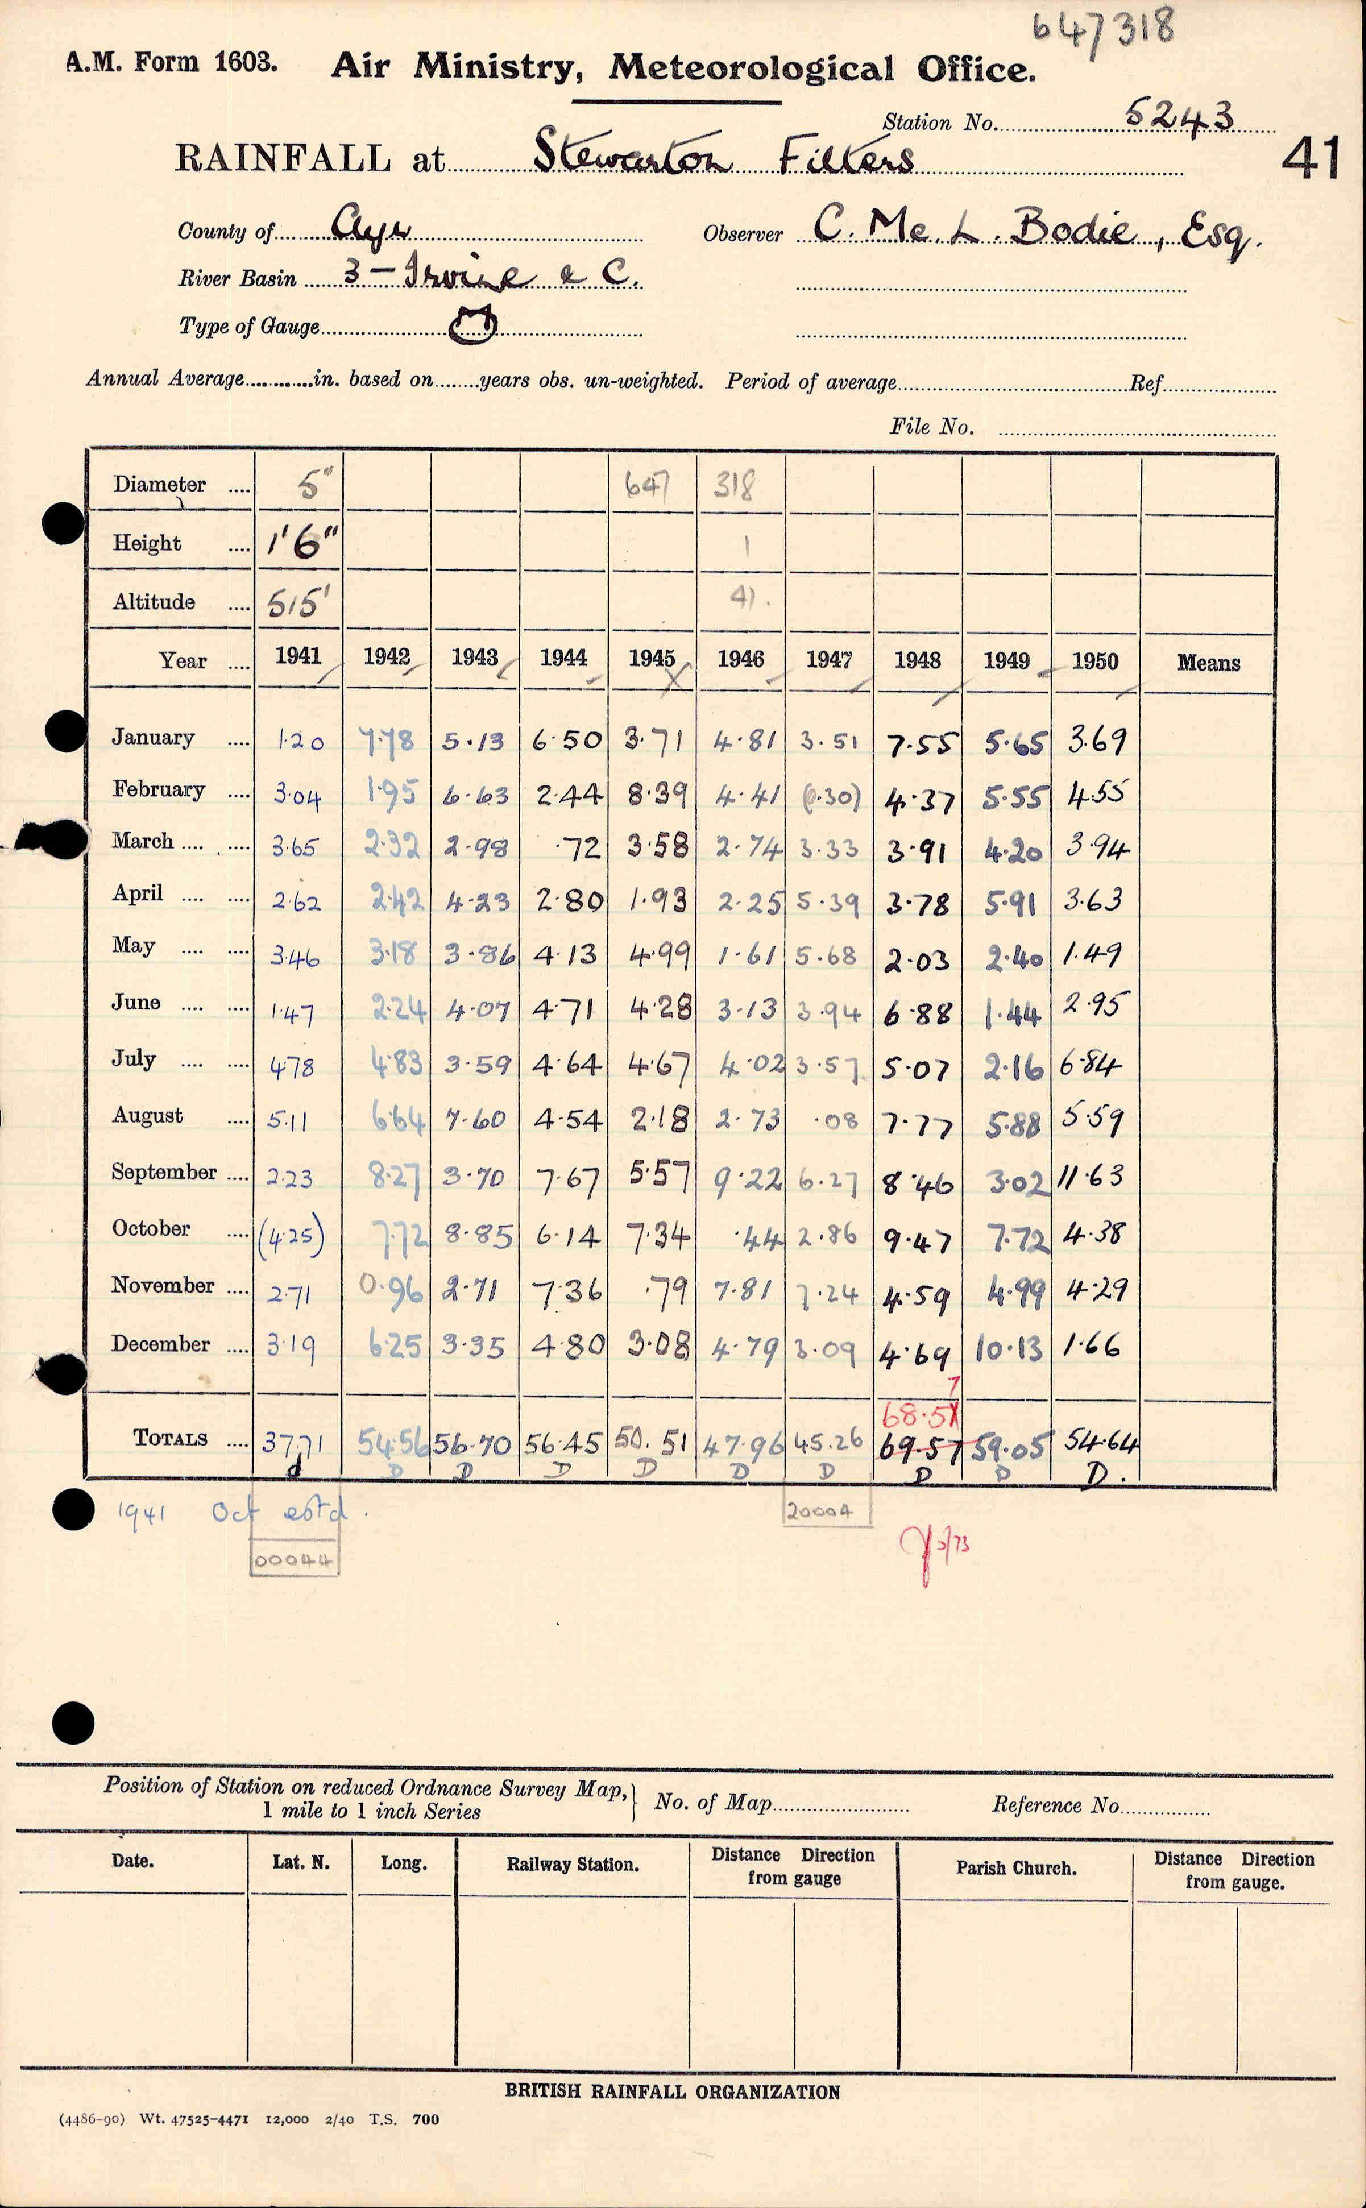 647318
A.M. Form 1603. Air Ministry, Meteorological Office.
Station No. 5243
RAINFALL at Stewarton Filters 41
County of Ayr Observer C. Mc. L. Bodie, Esq.
River Basin 3 - Irvine & C.
Type of Gauge M
Annual Average............in. based on........years obs. un-weighted. Period of average.................... Ref....................
File No. ....................
Diameter .... 5" 647 318
Height .... 1'6" 1
Altitude .... 515' 41.
Year .... 1941 1942 1943 1944 1945 1946 1947 1948 1949 1950 Means
January .... 1.20 7.78 5.13 6.50 3.71 4.81 3.51 7.55 5.65 3.69
February .... 3.04 1.95 6.63 2.44 8.39 4.41 (0.30) 4.37 5.55 4.55
March .... .... 3.65 2.32 2.98 .72 3.58 2.74 3.33 3.91 4.20 3.94
April .... .... 2.62 2.42 4.23 2.80 1.93 2.25 5.39 3.78 5.91 3.63
May .... .... 3.46 3.18 3.86 4.13 4.99 1.61 5.68 2.03 2.40 1.49
June .... .... 1.47 2.24 4.07 4.71 4.28 3.13 3.94 6.88 1.44 2.95
July .... .... 4.78 4.83 3.59 4.64 4.67 4.02 3.57 5.07 2.16 6.84
August .... 5.11 6.64 7.60 4.54 2.18 2.73 .08 7.77 5.88 5.59
September .... 2.23 8.27 3.70 7.67 5.57 9.22 6.27 8.46 3.02 11.63
October .... (4.25) 7.72 8.85 6.14 7.34 .44 2.86 9.47 7.72 4.38
November .... 2.71 0.96 2.71 7.36 .79 7.81 7.24 4.59 4.99 4.29
December .... 3.19 6.25 3.35 4.80 3.08 4.79 3.09 4.69 10.13 1.66
7
68.51
TOTALS .... 37.71 54.56 56.70 56.45 50.51 47.96 45.26 69.57 59.05 54.64
d D D D D D D D D D.
1941 Oct estd. 20004
00044
3/73
Position of Station on reduced Ordnance Survey Map, } No. of Map.................... Reference No....................
1 mile to 1 inch Series
Date. Lat. N. Long. Railway Station. Distance Direction from gauge Parish Church. Distance Direction from gauge.
BRITISH RAINFALL ORGANIZATION
(4486-90) Wt. 47525-4471 12,000 2/40 T.S. 700